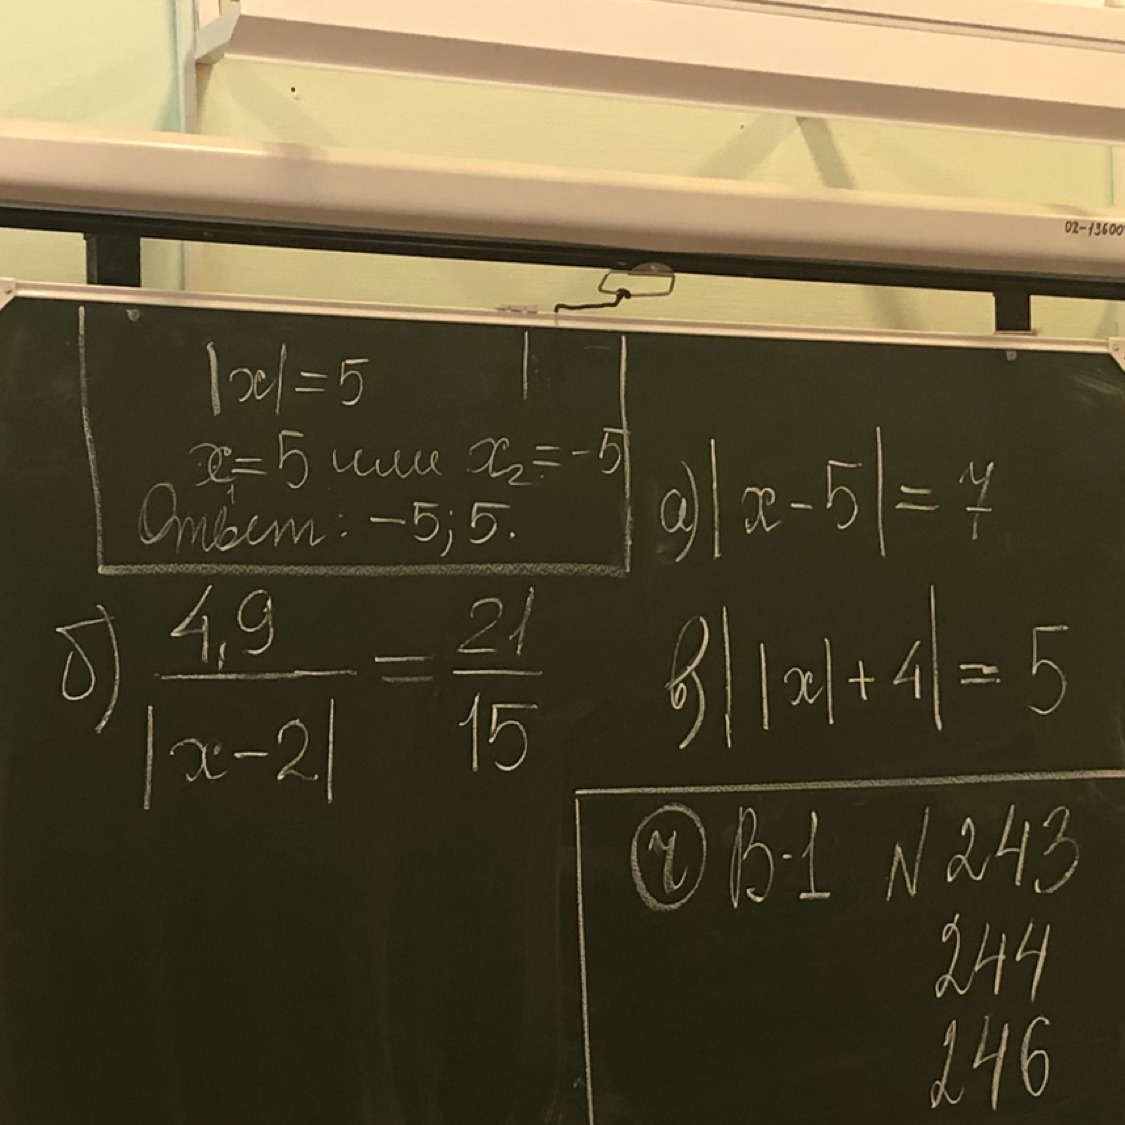 02-13600
|x|=5
x₁=5 или x₂=-5
Ответ: -5; 5.
а) |x-5|=7
б) 4,9/|x-2| = 21/15
в) ||x|+4|=5
B-1 N 243
244
246